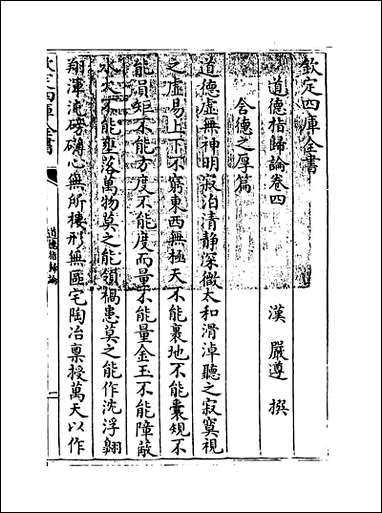 欽定四庫全書
道德指歸論卷四
漢 嚴遵 撰
含德之厚篇
道德虛無神明寂泊清静深微太和滑淖聽之寂寞視
之虛易上下不窮東西無極天不能裹地不能囊規不
能員矩不能方度不能度而量不能量金玉不能障蔽
水火不能壅落萬物莫之能領禍患莫之能作沈浮翱
翔渾沌磅礴心無所棲形無區宅陶冶禀授萬天以作
欽定四庫全書
道德指歸論
一